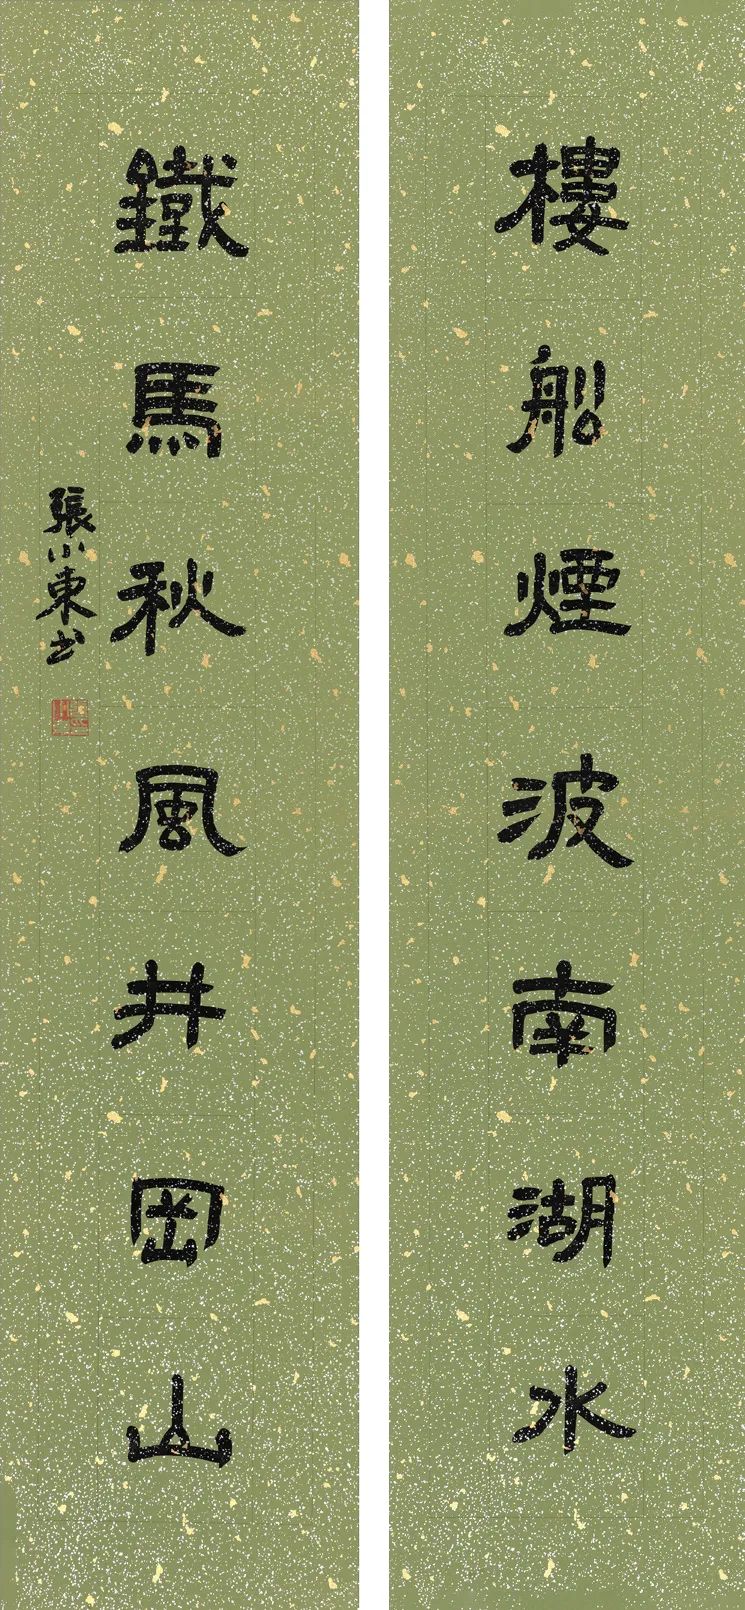 樓船煙波南湖水
鐵馬秋風井岡山
張小東书